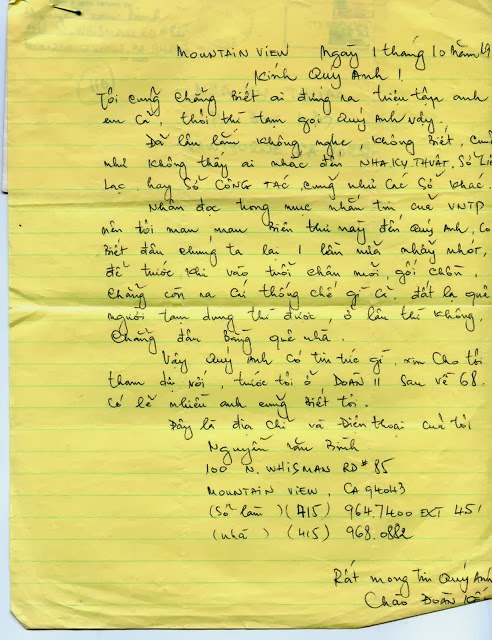 MOUNTAIN VIEW Ngày 1 tháng 10 năm 19
Kính Quý Anh !
Tôi cũng chẳng biết ai đứng ra triệu tập anh
em cả, thôi thì tạm gọi Quý Anh vậy.
Đã lâu lắm không nghe, không biết, cũng
như không thấy ai nhắc đến NHA KỸ THUẬT, SỞ LIÊN
LẠC, hay SỞ CÔNG TÁC, cũng như các Sở khác.
Nhân đọc trong mục nhắn tin của VNTP
nên tôi man man biên thư này đến Quý Anh, có
biết đâu chúng ta lại 1 lần nữa nhảy nhót,
để trước khi vào tuổi chân mỏi, gối chồn.
Chẳng còn ra cái thống chế gì cả, đất lạ quê
người tạm dung thì được, ở lâu thì không,
chẳng đâu bằng quê nhà.
Vậy Quý Anh có tin tức gì, xin cho tôi
tham dự với, trước tôi ở ĐOÀN 11 sau về 68.
Có lẽ nhiều anh cũng biết tôi.
Đây là địa chỉ và điện thoại của tôi
Nguyễn văn Bính
100 N. WHISMAN RD # 85
MOUNTAIN VIEW, CA 94043
(Sở làm) (415) 964.7400 EXT 451
(nhà) (415) 968.0882
Rất mong tin Quý Anh
Chào ĐOÀN KẾT